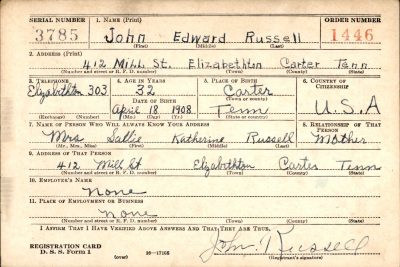 SERIAL NUMBER 1. NAME (Print) ORDER NUMBER
3785 John Edward Russell 1446
(First) (Middle) (Last)
2. ADDRESS (Print)
412 Mill St. Elizabethton Carter Tenn
(Number and street or R. F. D. number) (Town) (County) (State)
3. TELEPHONE 4. AGE IN YEARS 5. PLACE OF BIRTH 6. COUNTRY OF CITIZENSHIP
Elizabethton 303 32 Carter
DATE OF BIRTH (Town or county)
April 18 1908 Tenn U.S.A
(Exchange) (Number) (Mo.) (Day) (Yr.) (State or country)
7. NAME OF PERSON WHO WILL ALWAYS KNOW YOUR ADDRESS 8. RELATIONSHIP OF THAT PERSON
Mrs Sallie Katherine Russell Mother
(Mr., Mrs., Miss) (First) (Middle) (Last)
9. ADDRESS OF THAT PERSON
412 Mill St Elizabethton Carter Tenn
(Number and street or R. F. D. number) (Town) (County) (State)
10. EMPLOYER'S NAME
None
11. PLACE OF EMPLOYMENT OR BUSINESS
None
(Number and street or R. F. D. number) (Town) (County) (State)
I AFFIRM THAT I HAVE VERIFIED ABOVE ANSWERS AND THAT THEY ARE TRUE.
REGISTRATION CARD John Russell
D. S. S. Form 1 (over) 16—17105 (Registrant's signature)